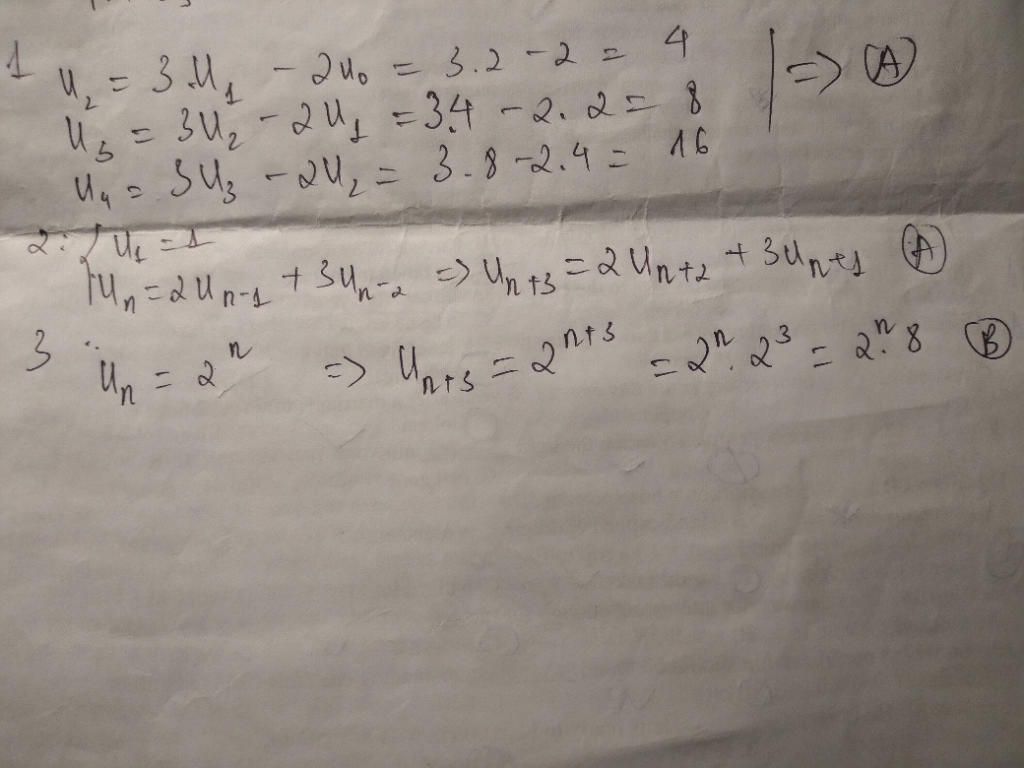 1 u₂ = 3.u₁ - 2u₀ = 3.2 - 2 = 4 | => Ⓐ
u₃ = 3u₂ - 2u₁ = 3.4 - 2.2 = 8
u₄ = 3u₃ - 2u₂ = 3.8 - 2.4 = 16
2: { u₁ = 1
uₙ = 2uₙ₋₁ + 3uₙ₋₂ => uₙ₊₃ = 2uₙ₊₂ + 3uₙ₊₁ Ⓐ
3 : uₙ = 2ⁿ => uₙ₊₃ = 2ⁿ⁺³ = 2ⁿ.2³ = 2ⁿ.8 Ⓑ